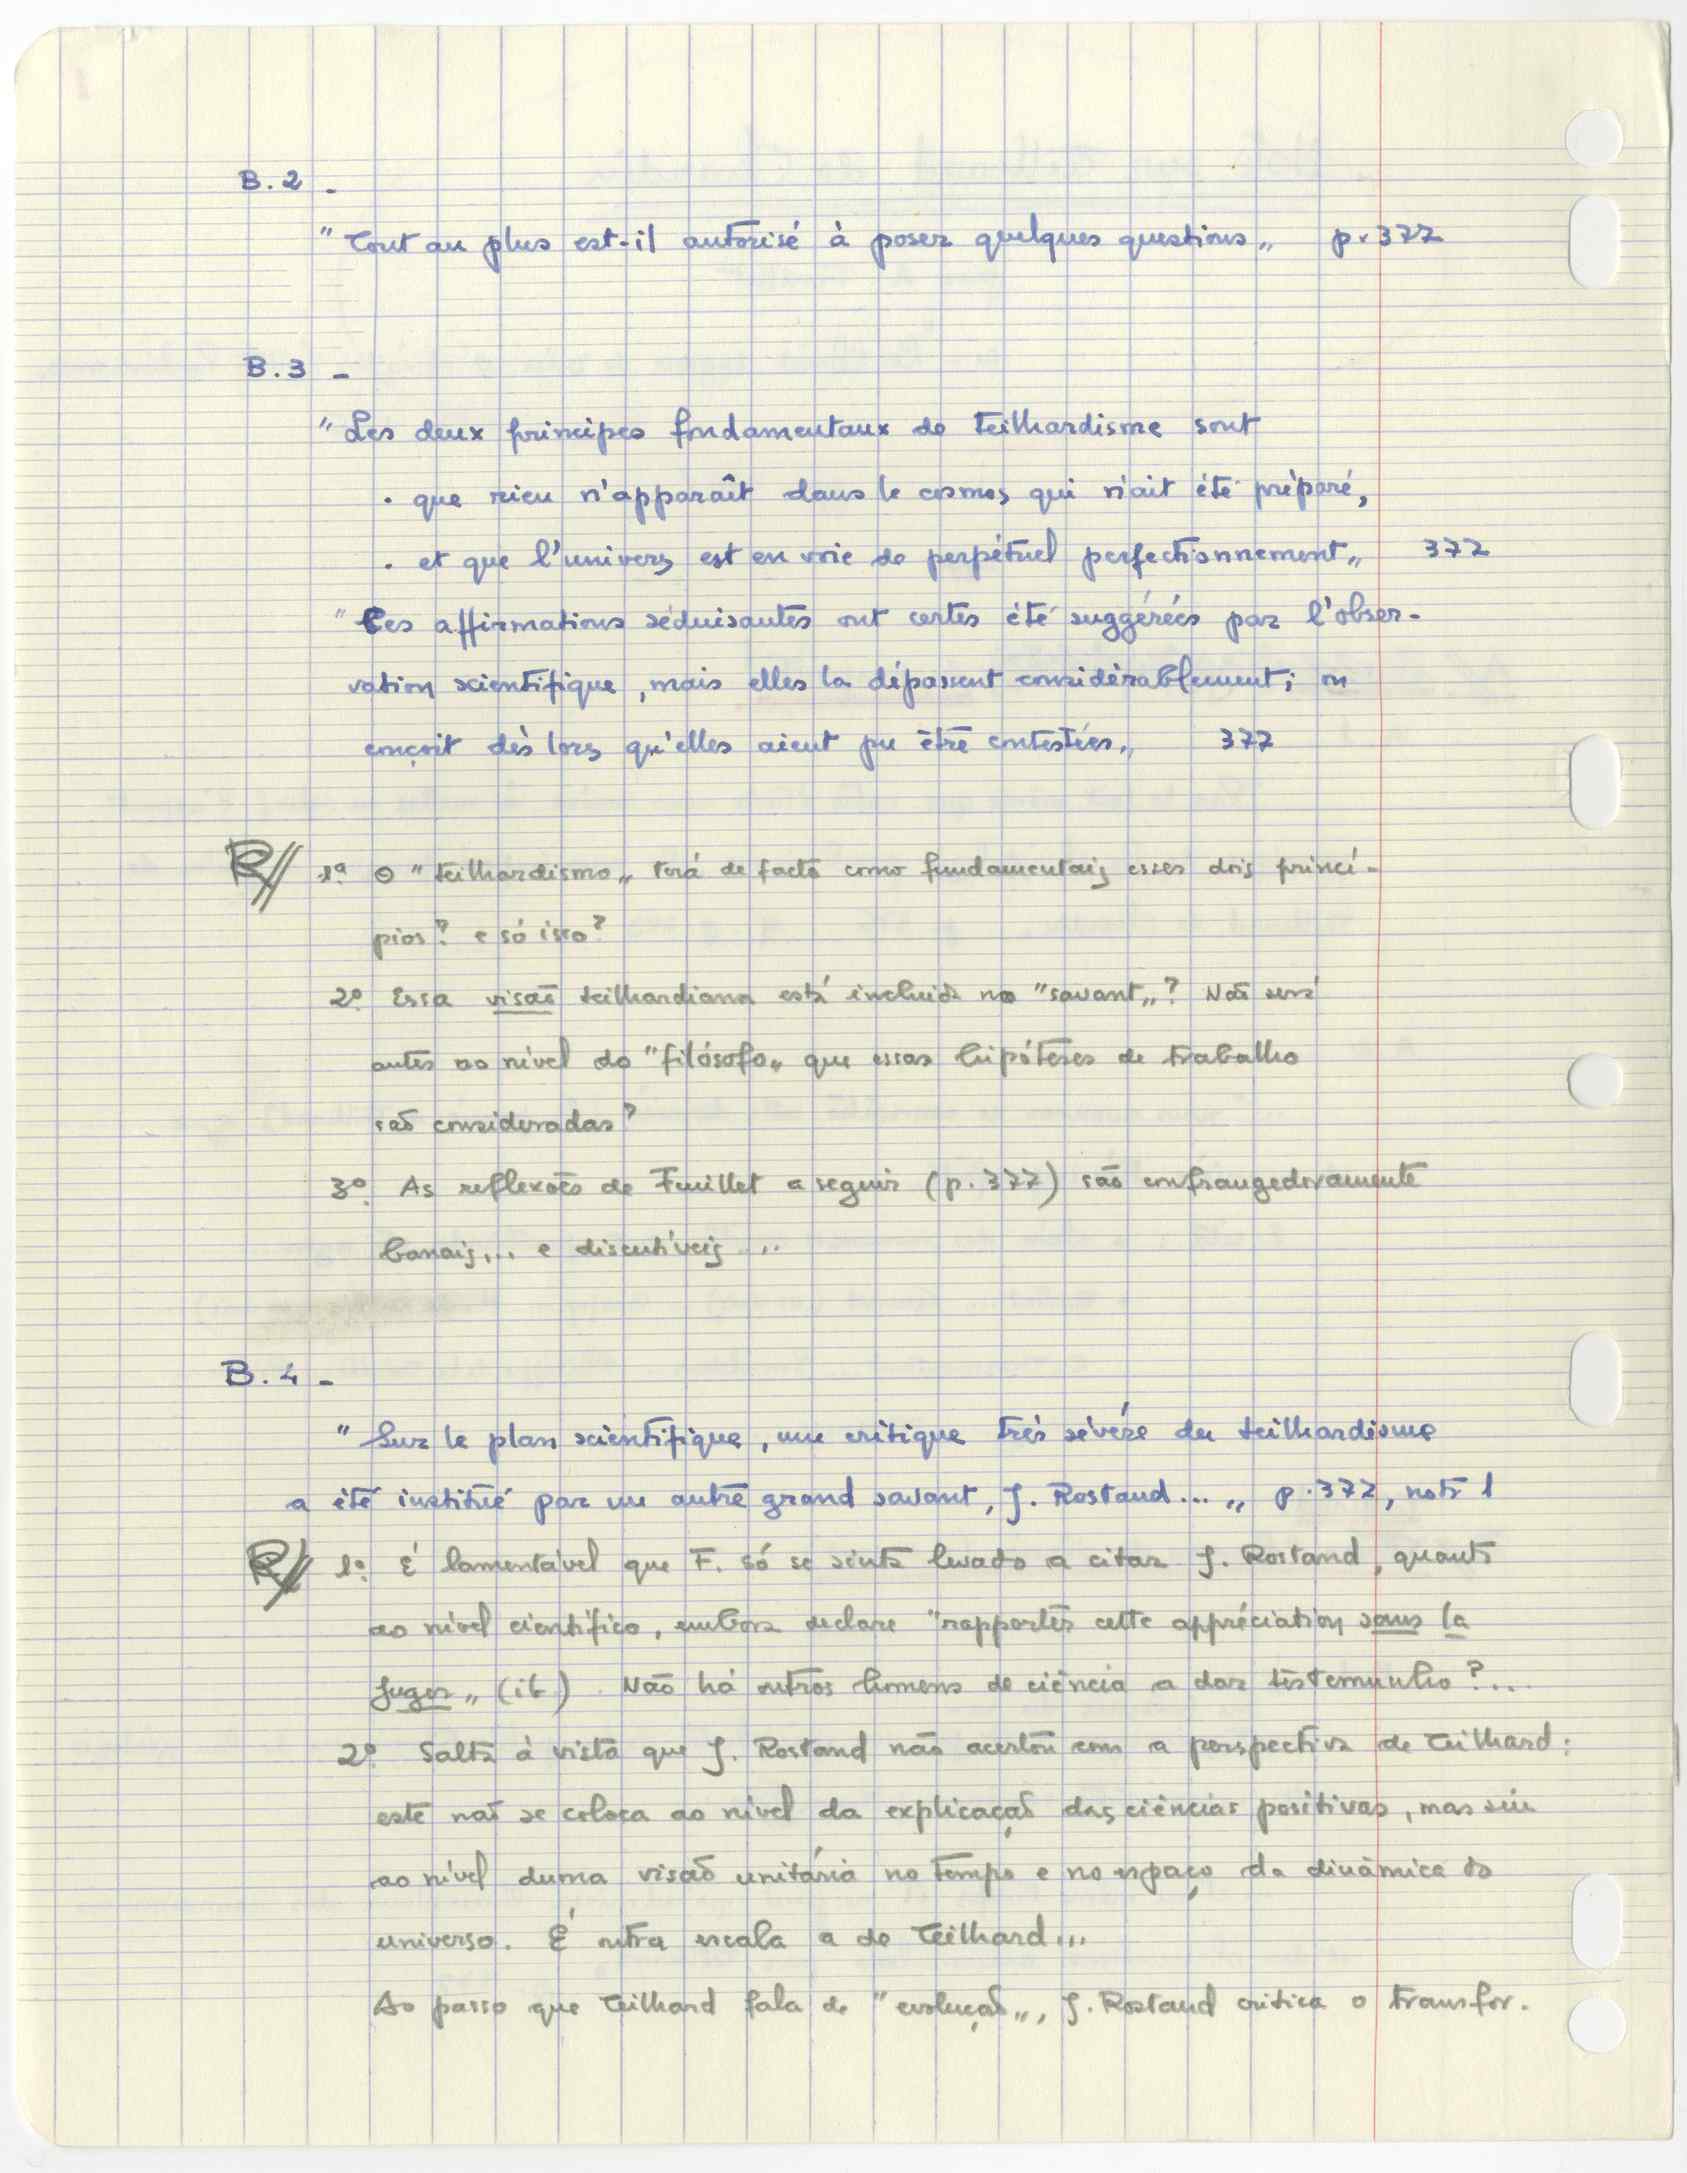 B.2 -
" Tout au plus est-il autorisé à poser quelques questions „ p. 377
B.3 -
" Les deux principes fondamentaux de teilhardisme sont
. que rien n'apparaît dans le cosmos qui n'ait été préparé,
. et que l'univers est en voie de perpétuel perfectionnement „ 377
" Ces affirmations séduisantes ont certes été suggérées par l'obser-
vation scientifique, mais elles la dépassent considérablement; on
conçoit dès lors qu'elles aient pu être contestées „ 377
R// 1º O " teilhardismo „ terá de facto como fundamentais esses dois princí-
pios? e só isso?
2º Essa visão teilhardiana está incluida no "savant „? Não será
antes ao nível do "filósofo „ que essas hipóteses de trabalho
são consideradas?
3º As reflexões de Feuillet a seguir (p. 377) são confrangedoramente
banais... e discutíveis ...
B.4 -
" Sur le plan scientifique, une critique très sévère du teilhardisme
a été institué par un autre grand savant, J. Rostand ... „ p. 377, note 1
R// 1º É lamentável que F. só se sinta levado a citar J. Rostand, quanto
ao nível científico, embora declare "rapporter cette appréciation sans la
juger „ (ib). Não há outros homens de ciência a dar testemunho?...
2º Salta à vista que J. Rostand não acertou com a perspectiva de Teilhard:
este não se coloca ao nível da explicação das ciências positivas, mas sim
ao nível duma visão unitária no tempo e no espaço da dinâmica do
universo. É outra escala a de Teilhard...
Ao passo que Teilhard fala de " evolução „, J. Rostand critica o transfor-